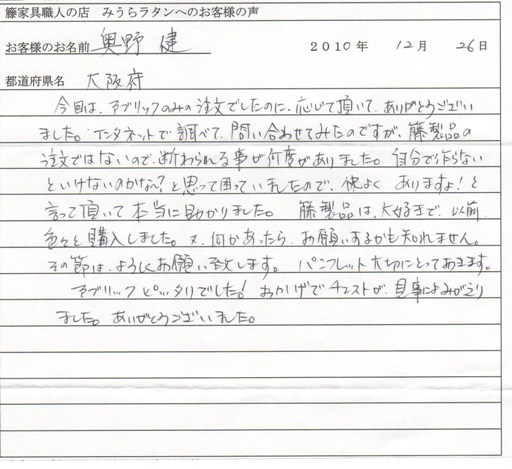 籐家具職人の店　みうらラタンへのお客様の声
お客様のお名前　奥野　健　2010年　12月　26日
都道府県名　大阪府
今回は、ファブリックのみの注文でしたのに、応じて頂いて、ありがとうござい
ました。インタネットで調べて、問い合わせてみたのですが、藤製品の
注文ではないので、断わられる事が何度がありました。自分で作らない
といけないのかな？と思って困っていましたので、快よく　ありますよ！と
言って頂いて本当に助かりました。　藤製品は、大好きで、以前
色々と購入しました。又、何かあったら、お願いするかも知れません。
その節は、よろしくお願い致します。　パンフレット大切にとっておきます。
ファブリックピッタリでした！おかげでチェストが、見事によみがえり
ました。ありがとうございました。